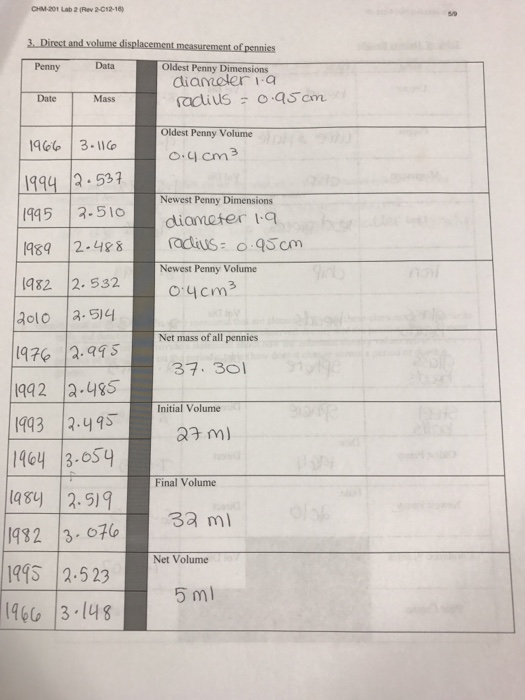 CHM-201 Lab 2 (Rev 2-C12-16)
5/9
3. Direct and volume displacement measurement of pennies
Penny Data
Date Mass
1966 3.116
1994 2.537
1995 2.510
1989 2.488
1982 2.532
2010 2.514
1976 2.995
1992 2.485
1993 2.495
1964 3.054
1984 2.519
1982 3.076
1995 2.523
1966 3.148
Oldest Penny Dimensions
diameter 1.9
radius = 0.95cm
Oldest Penny Volume
0.4cm³
Newest Penny Dimensions
diameter 1.9
radius= 0.95cm
Newest Penny Volume
0.4cm³
Net mass of all pennies
37.301
Initial Volume
27ml
Final Volume
32 ml
Net Volume
5ml